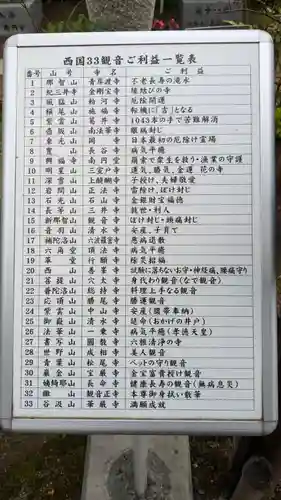 西国33観音ご利益一覧表
番号 山号 寺名 ご利益
1 那智山 青岸渡寺 不老長寿の滝水
2 紀三井寺 金剛宝寺
3 風猛山 粉河寺 厄除開運
4 槇尾山 施福寺 転機に「吉」となる
5 紫雲山 葛井寺 1043本の手で苦難解消
6 壺阪山 南法華寺 眼病封じ
7 東光山 岡寺 日本最初の厄除け霊場
8 豊山 長谷寺 病気平癒
9 興福寺 南円堂
10 明星山 三室戸寺 運気、勝気、金運 花の寺
11 深雪山 上醍醐寺 子授け、夫婦敬愛
12 岩間山 正法寺 雷除け、ぼけ封じ
13 石光山 石山寺 金銀財宝福徳
14 長等山 三井寺
15 新那智山 観音寺 ぼけ封じ・頭痛封じ
16 音羽山 清水寺 安産、子育て
17 補陀洛山 六波羅蜜寺 悪病退散
18 六角堂 頂法寺 病気平癒
19 革堂 行願寺 除災招福
20 西山 善峯寺 試験に落ちないお守・神経痛、腰痛守り
21 菩提山 穴太寺 身代わり観音(なで観音)
22 普陀洛山 総持寺 料理上手なる観音
23 応頂山 勝尾寺 勝運観音
24 紫雲山 中山寺 安産(腹帯奉納)
25 御嶽山 清水寺 延命(おかげの井戸)
26 法華山 一乗寺 病気平癒(孝徳天皇)
27 書写山 圓教寺 六根清浄の寺
28 世野山 成相寺 美人観音
29 青葉山 松尾寺 ペットの守り観音
30 巌金山 宝厳寺 金宝富貴授け観音
31 姨綺耶山 長命寺 健康長寿の観音(無病息災)
32 繖山 観音正寺 本尊御身拭い散華
33 谷汲山 華厳寺 満願成就